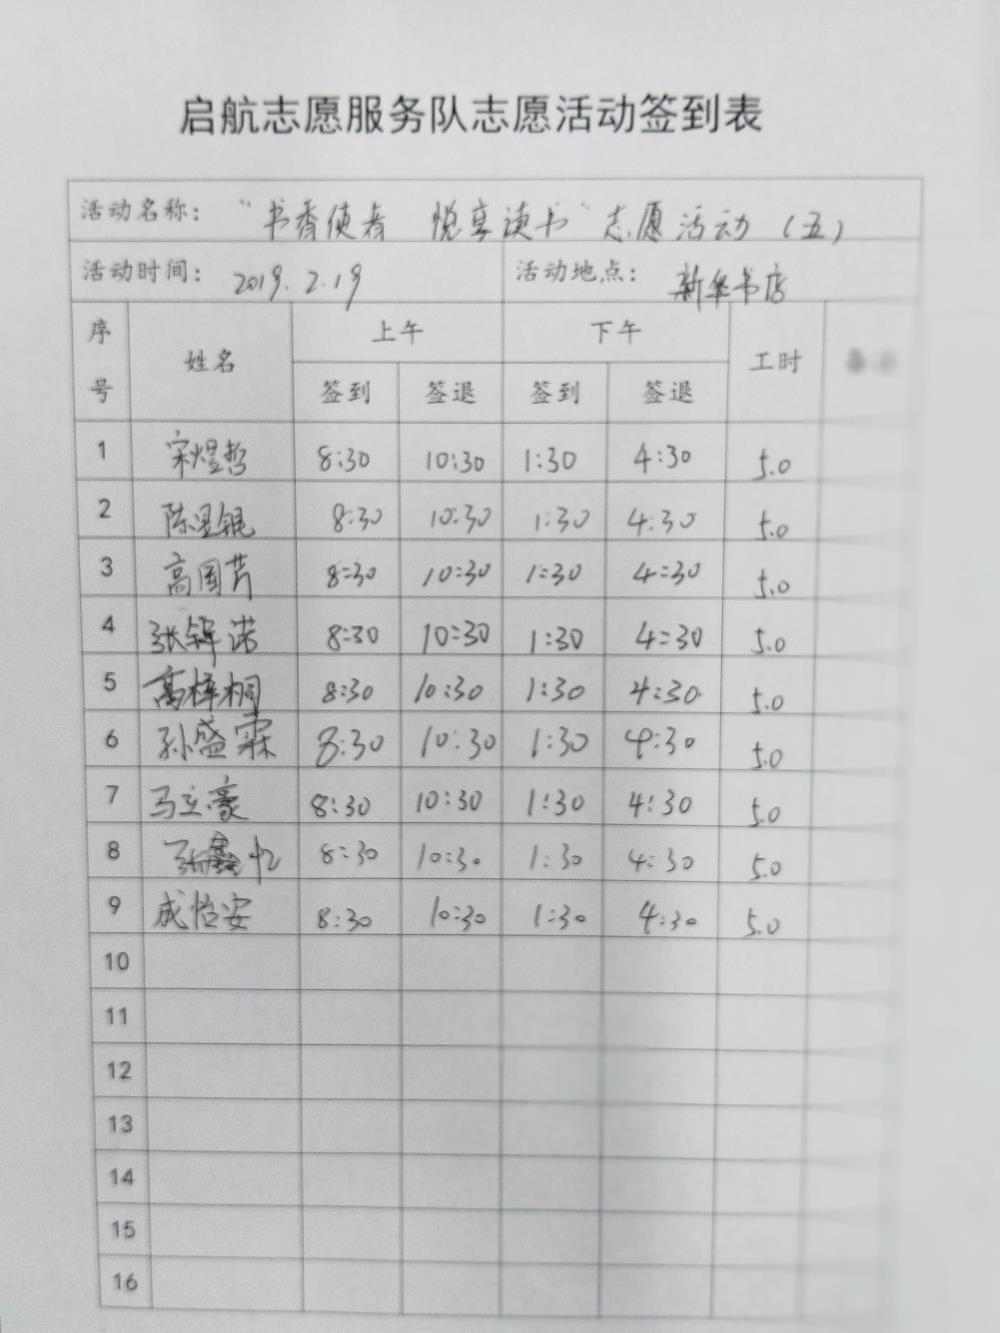 启航志愿服务队志愿活动签到表
活动名称：“书香使者 悦享读书”志愿活动（五）
活动时间：2019.2.19 活动地点：新华书店
序号 姓名 上午 下午 工时
签到 签退 签到 签退
1 宋煜哲 8:30 10:30 1:30 4:30 5.0
2 陈星锟 8:30 10:30 1:30 4:30 5.0
3 高国芮 8:30 10:30 1:30 4:30 5.0
4 张铎诺 8:30 10:30 1:30 4:30 5.0
5 高梓桐 8:30 10:30 1:30 4:30 5.0
6 孙盛霖 8:30 10:30 1:30 4:30 5.0
7 马立豪 8:30 10:30 1:30 4:30 5.0
8 张鑫忆 8:30 10:30 1:30 4:30 5.0
9 成怡安 8:30 10:30 1:30 4:30 5.0
10
11
12
13
14
15
16